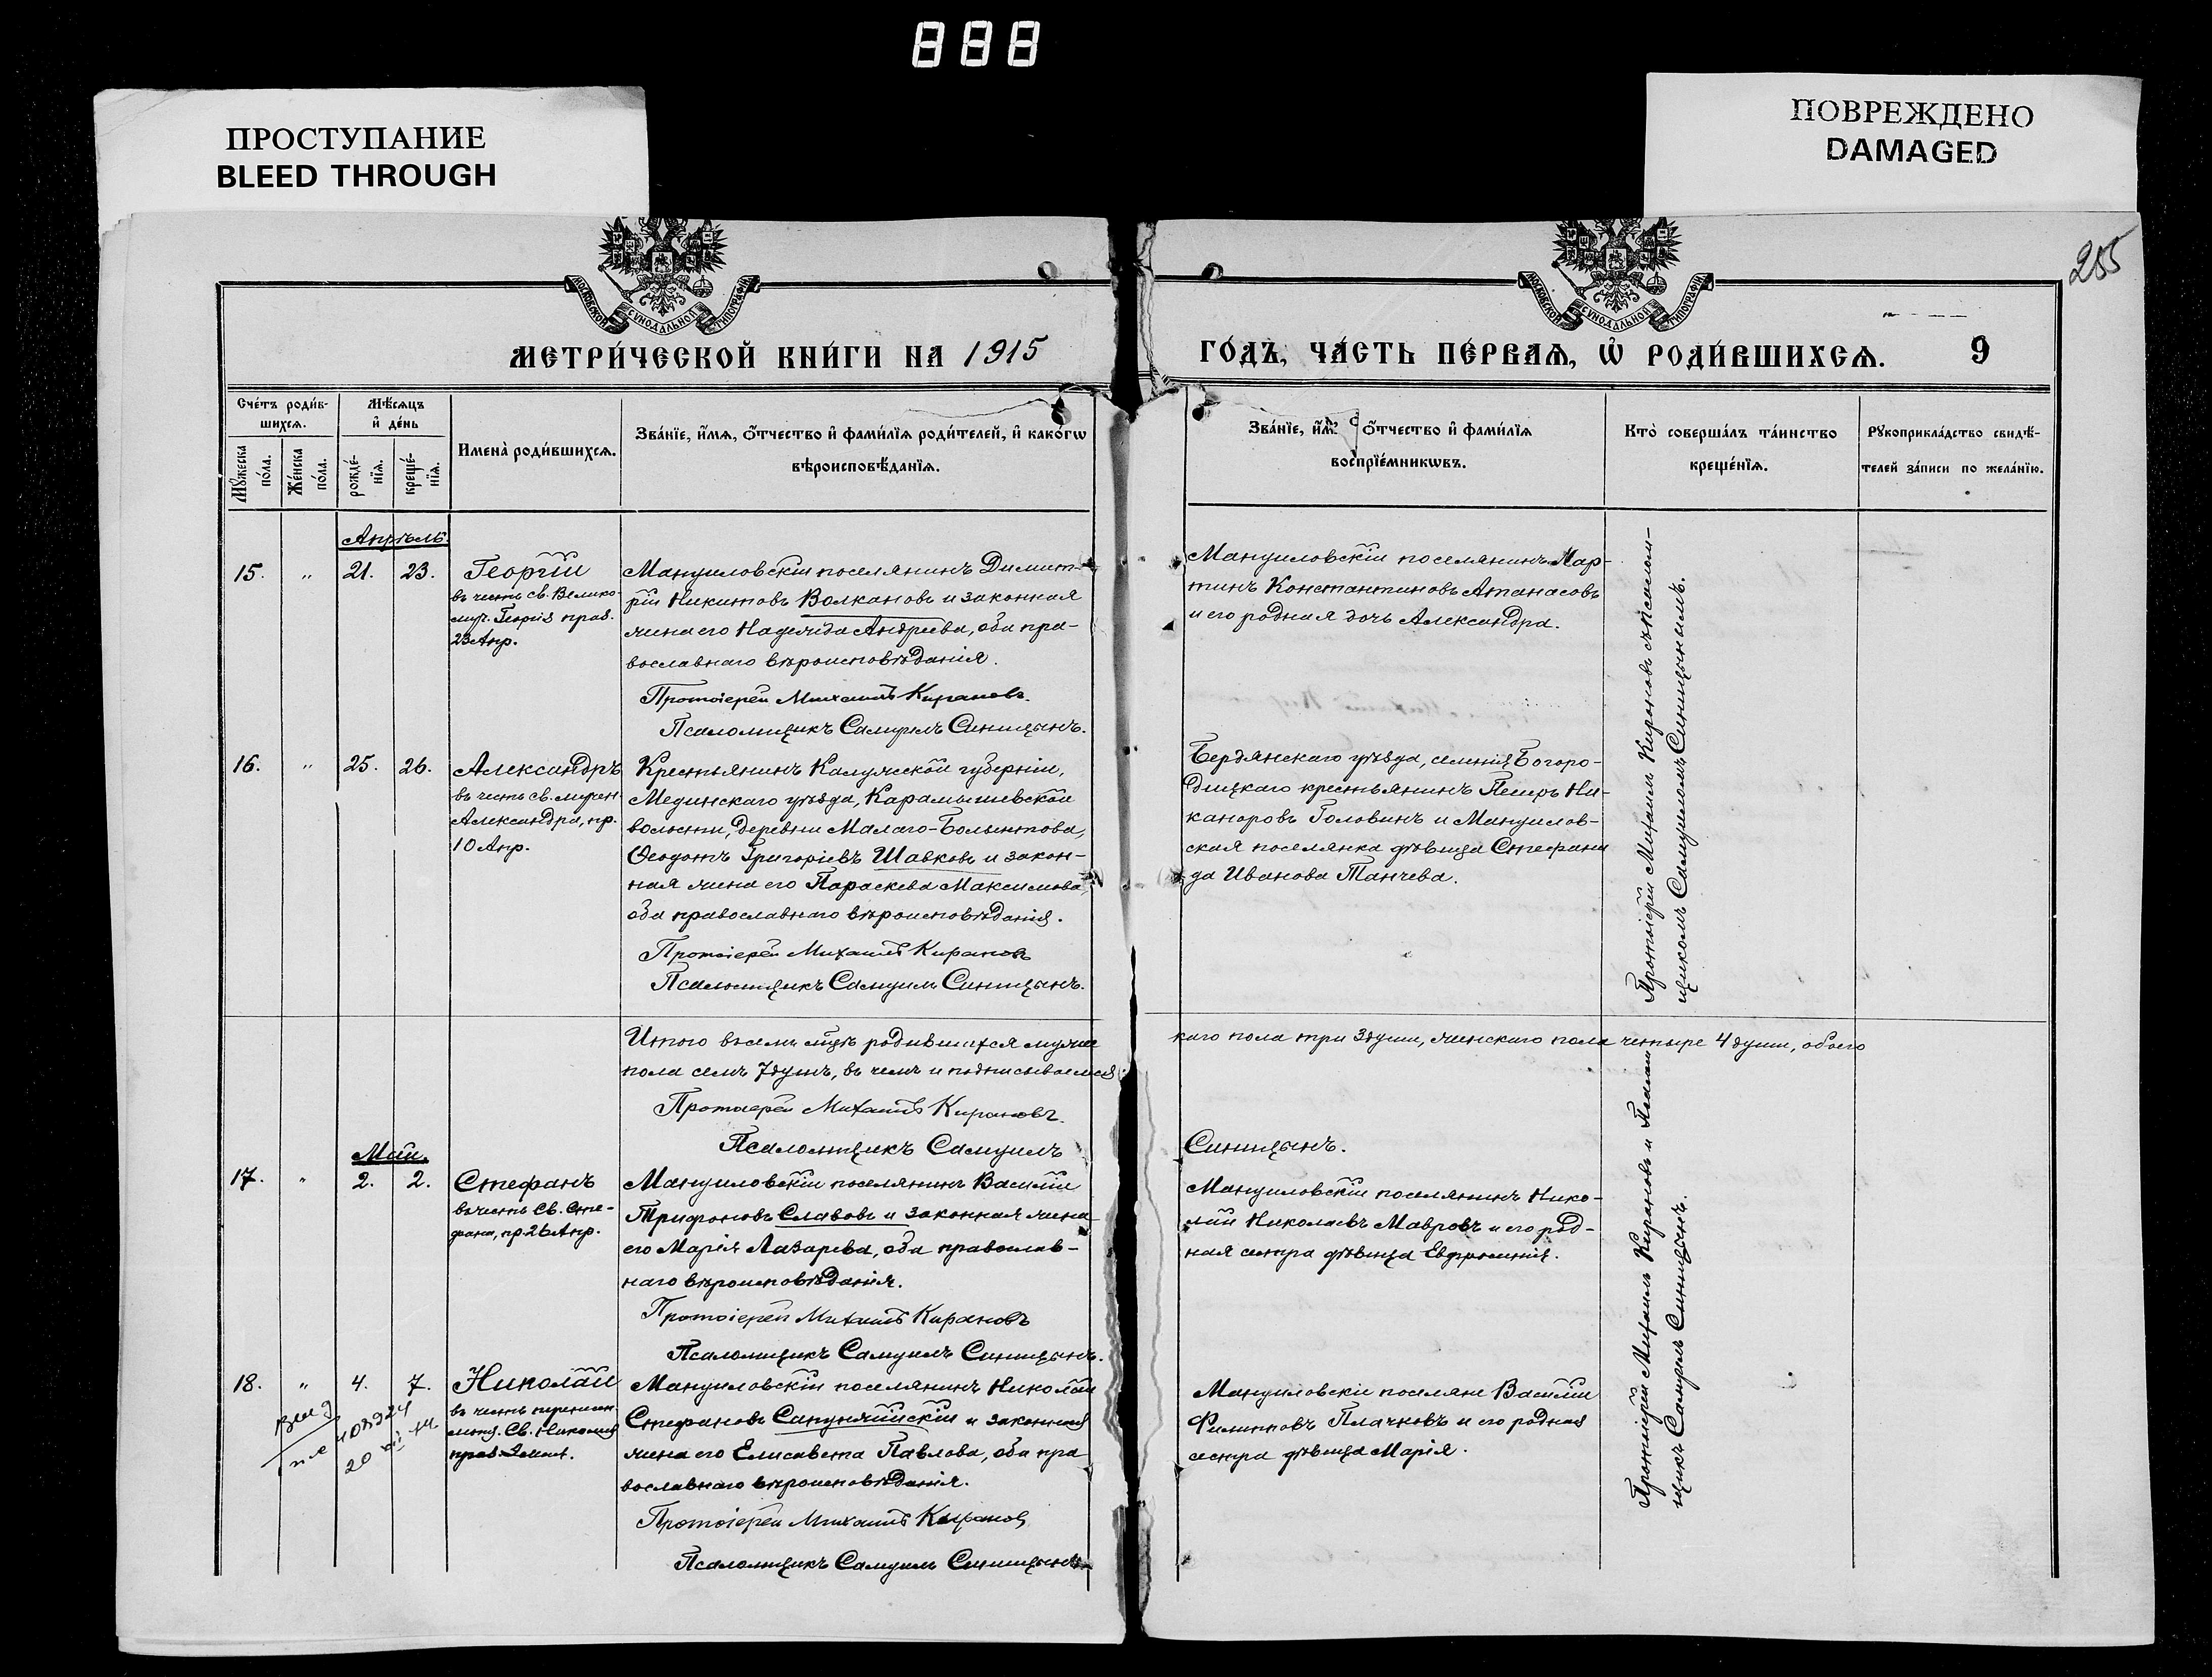 888
ПРОСТУПАНИЕ
BLEED THROUGH
ПОВРЕЖДЕНО
DAMAGED
МОСКОВСКОЙ СѴНОДАЛЬНОЙ ТИПОГРАФІИ
МОСКОВСКОЙ СѴНОДАЛЬНОЙ ТИПОГРАФІИ
255
МЕТРИ́ЧЕСКОЙ КНИ́ГИ НА 1915
ГО́ДЪ, ЧА́СТЬ ПЕ́РВАѦ, Ѡ҆ РОДИ́ВШИХСѦ. 9
Сче́тъ роди́в-
шихсѧ.
Мꙋ́жеска по́ла.
Же́нска по́ла.
Мѣ́сѧцъ
и҆ де́нь
рожде́-
нїѧ.
креще́-
нїѧ.
Имена̀ роди́вшихсѧ.
Зва́нїе, и҆́мѧ, ѻ҆́тчество и҆ фами́лїѧ роди́телей, и҆ како́гѡ
вѣроисповѣ́данїѧ.
Зва́нїе, и҆́мѧ, ѻ҆́тчество и҆ фами́лїѧ
воспрїе́мникѡвъ.
Кто̀ соверша́лъ та́инство
креще́нїѧ.
Рꙋкоприкла́дство свидѣ́-
телей за́писи по жела́нїю.
Апрѣль.
15. " 21. 23. Георгій
въ честь св. Велико-
муч. Георгія праз.
23 Апр.
Мануиловскій поселянинъ Димит-
рій Никитовъ Волкановъ и законная
жена его Надежда Андреева, оба пра-
вославнаго вѣроисповѣданія.
Протоіерей Михаилъ Кирановъ.
Псаломщикъ Самуилъ Синицынъ.
Мануиловскій поселянинъ Мар-
тинъ Константиновъ Атанасовъ
и его родная дочь Александра.
Протоіерей Михаилъ Кирановъ съ псалом-
щикомъ Самуиломъ Синицынымъ.
16. " 25. 26. Александръ
въ честь св. мучен.
Александра, пр.
10 Апр.
Крестьянинъ Калужской губерніи,
Медынскаго уѣзда, Карамышевской
волости, деревни Малаго-
Ѳеодотъ Григоріевъ Шавковъ и закон-
ная жена его Параскева Максимова,
оба православнаго вѣроисповѣданія.
Протоіерей Михаилъ Кирановъ
Псаломщикъ Самуилъ Синицынъ.
Бердянскаго уѣзда, селенія Богоро-
дицкаго крестьянинъ Петръ Ни-
каноровъ Головинъ и Мануилов-
ская поселянка дѣвица Стефани
да Иванова Танчева.
Итого родившихся мужес
каго пола три 3 души, женскаго пола четыре 4 души, обоего
пола семь 7 душъ, въ чемъ и подписываемся
Протоіерей Михаилъ Кирановъ.
Псаломщикъ Самуилъ
Синицынъ.
Май.
17. " 2. 2. Стефанъ
въ честь Св. Сте-
фана, пр. 26 Апр.
Мануиловскій поселянинъ Василій
Трифоновъ Славовъ и законная жена
его Марія Лазарева, оба православ-
наго вѣроисповѣданія.
Протоіерей Михаилъ Кирановъ
Псаломщикъ Самуилъ Синицынъ.
Мануиловскій поселянинъ Нико-
лай Николаевъ Мавровъ и его род-
ная сестра дѣвица Евфросинія.
Протоіерей Михаилъ Кирановъ и Псалом
щикъ Самуилъ Синицынъ.
18. " 4. 7. Николай
въ честь перенесен.
мощ. Св. Николая
праз.
Мануиловскій поселянинъ Николай
Стефановъ Сапунжійскій и законная
жена его Елисавета Павлова, оба пра
вославнаго вѣроисповѣданія.
Протоіерей Михаилъ Кирановъ
Псаломщикъ Самуилъ Синицынъ.
Мануиловскіе поселяне Василій
Филипповъ Плачковъ и его родная
сестра дѣвица Марія.